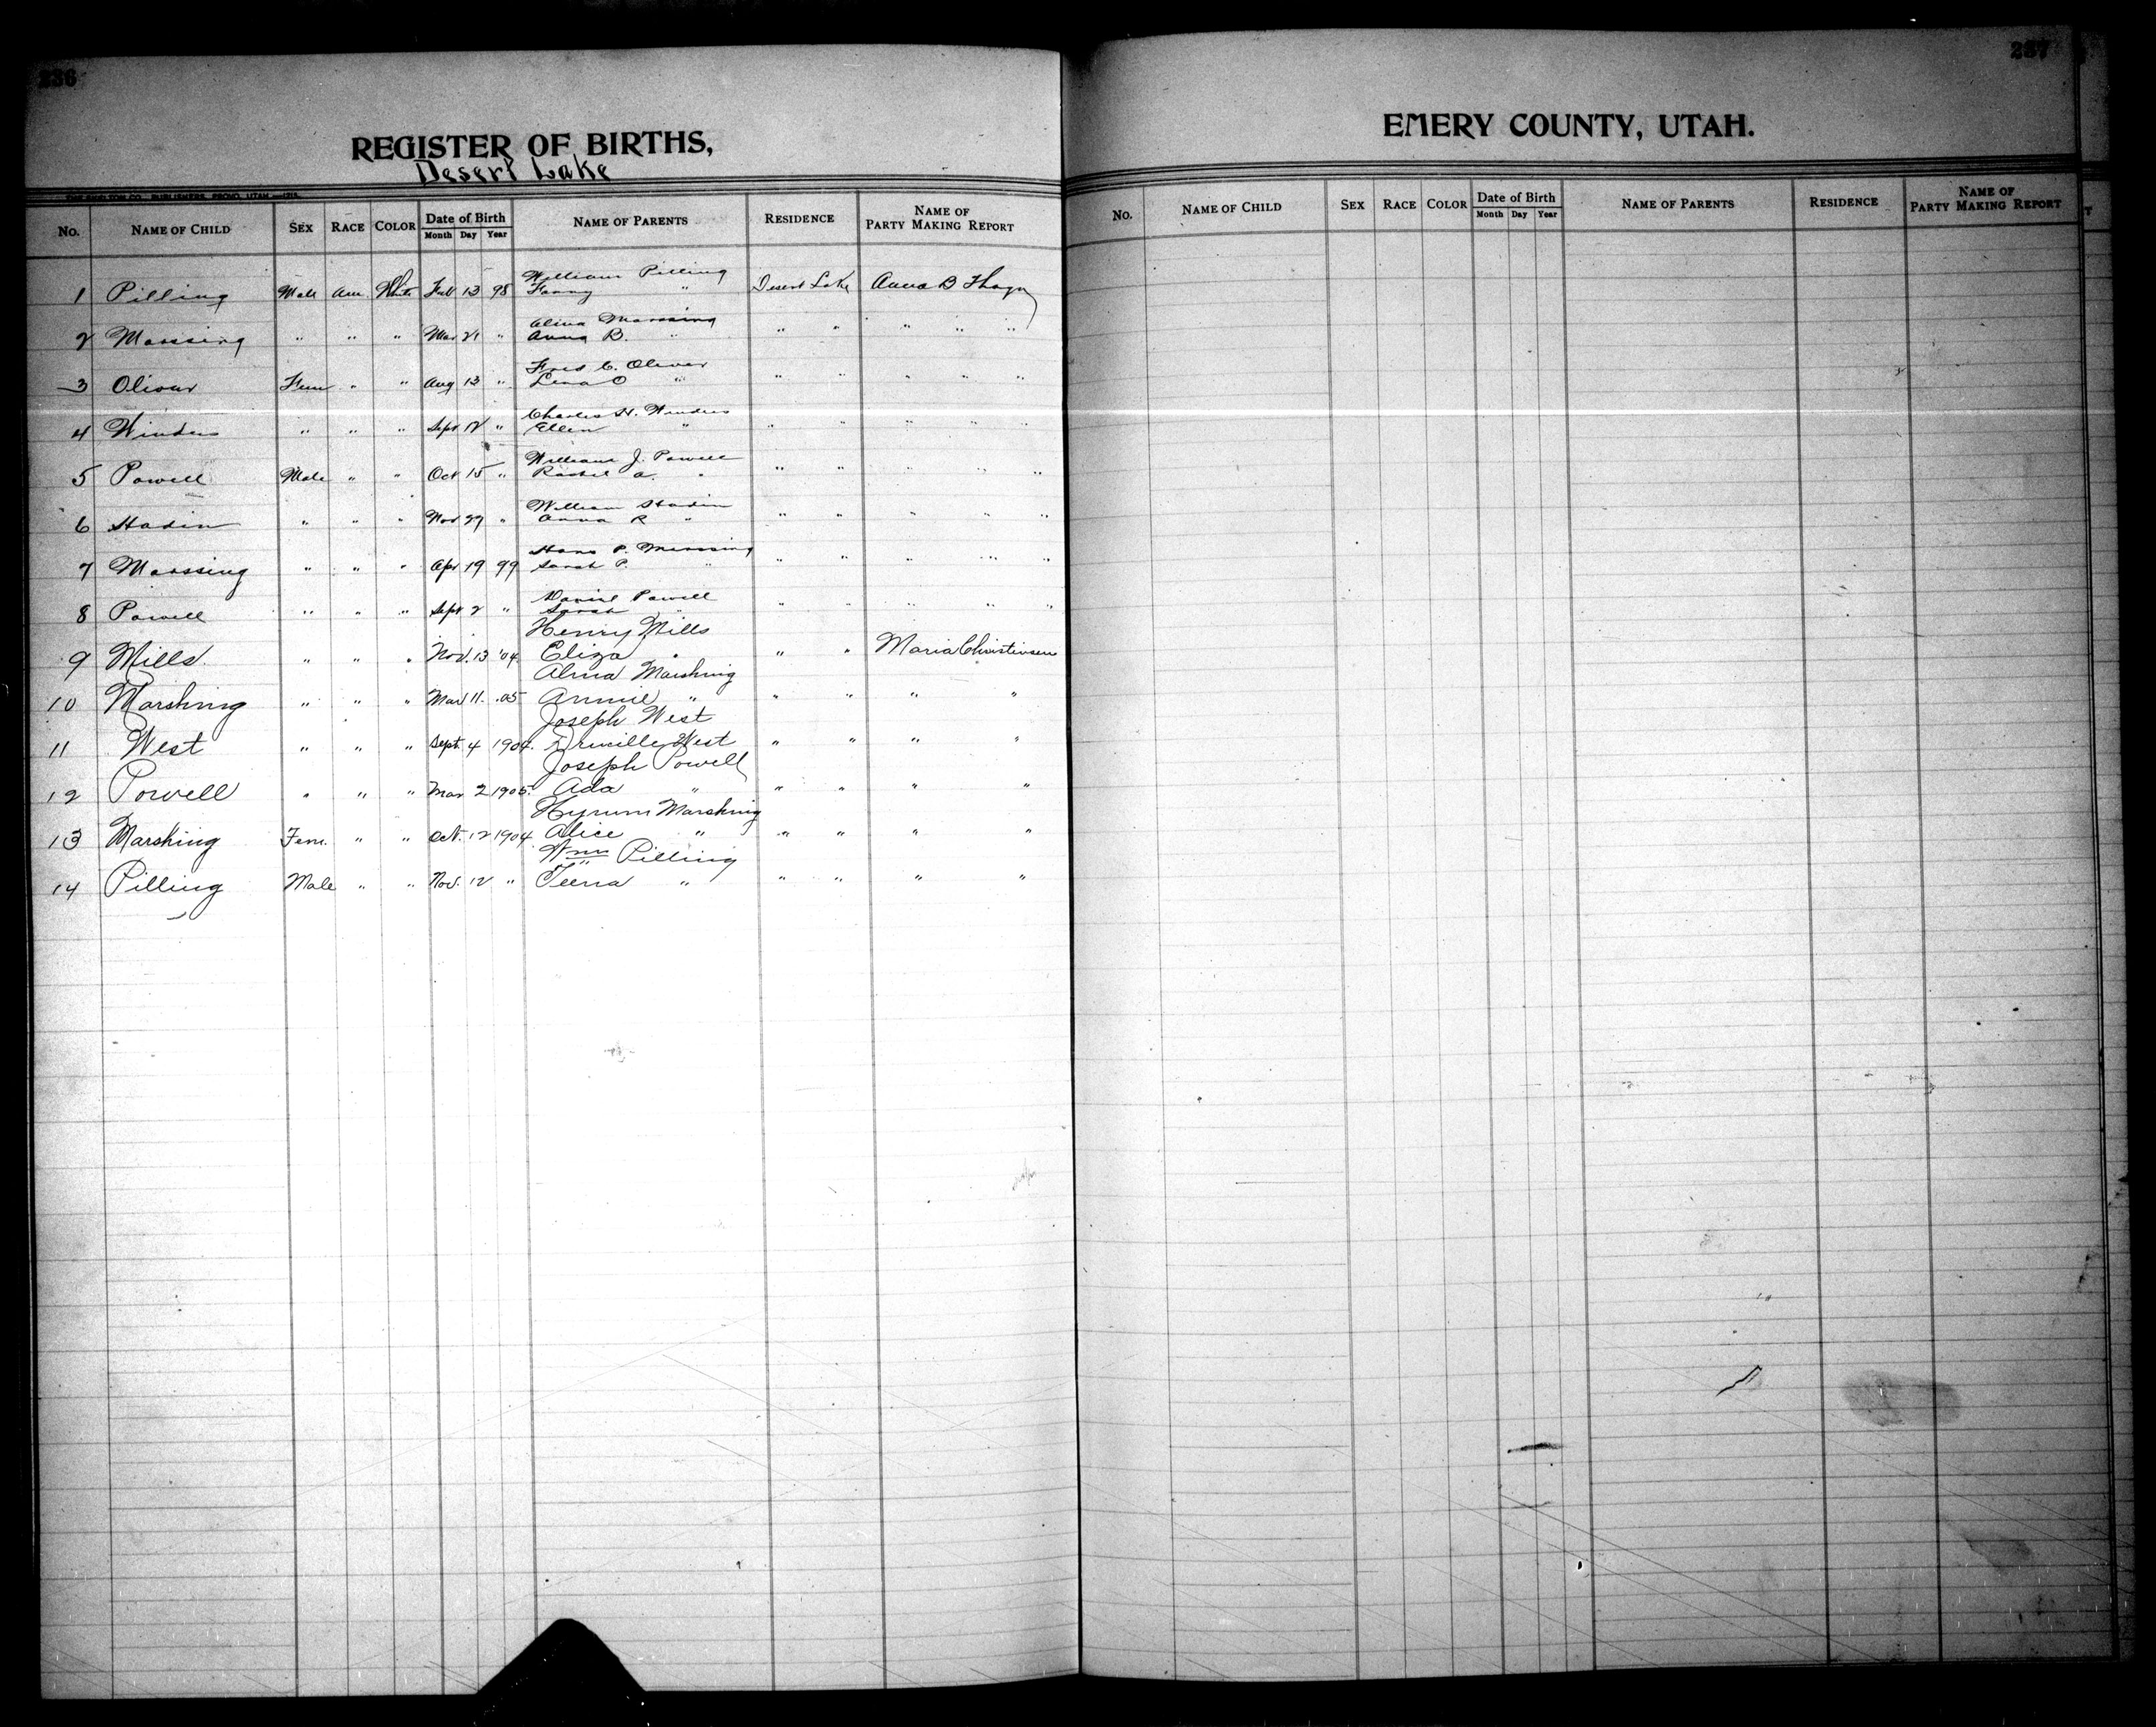 236
REGISTER OF BIRTHS,
Desert Lake
No. NAME OF CHILD SEX RACE COLOR Date of Birth Month Day Year NAME OF PARENTS RESIDENCE NAME OF PARTY MAKING REPORT
William Pilling
1 Pilling Male Am White Feb 13 98 Fanny " Desert Lake Anna B
Marssing
2 Marssing " " " Mar 21 " Anna B. " " " " " "
Fred C. Oliver
3 Oliver Fem " " Aug 13 " Lena O " " " " " "
Charles H. Winders
4 Winders " " " Sept 12 " Ellen " " " " " "
William J. Powell
5 Powell Male " " Oct 15 " Rachel A. " " " " " "
William Stadin
6 Stadin " " " Nov 29 " Anna R " " " " " "
Hans P. Marssing
7 Marssing " " " Apr 19 99 Sarah P. " " " " " "
Daniel Powell
8 Powell " " " Sept 2 " Sarah " " " " " "
Henry Mills
9 Mills. " " " Nov. 13 '04. Eliza " " " Maria Christinsen
Alma Marshing
10 Marshing " " " Mar 11. .05 Annie " " " " "
Joseph West
11 West " " " Sept. 4 1904. West " " " "
Joseph Powell
12 Powell " " " Mar 2 1905. Ada " " " " "
Hyrum Marshing
13 Marshing Fem. " " Oct. 12 1904 Alice " " " " "
Wm Pilling
14 Pilling Male " " Nov. 12 " Teena " " " " "
237
EMERY COUNTY, UTAH.
No. NAME OF CHILD SEX RACE COLOR Date of Birth Month Day Year NAME OF PARENTS RESIDENCE NAME OF PARTY MAKING REPORT